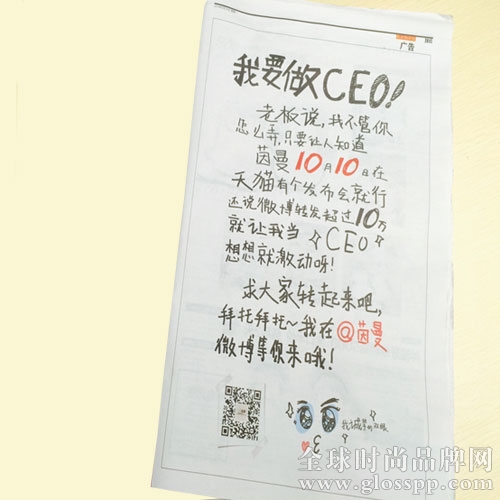 广告
我要做CEO!
老板说,我不管你
怎么弄,只要让人知道
茵曼10月10日在
天猫有个发布会就行
还说微博转发超过10万
就让我当CEO
想想就激动呀!
求大家转起来吧,
拜托拜托~我在@茵曼
微博等你来哦!
我诚挚的双眼
全球时尚品牌网
www.glosspp.com